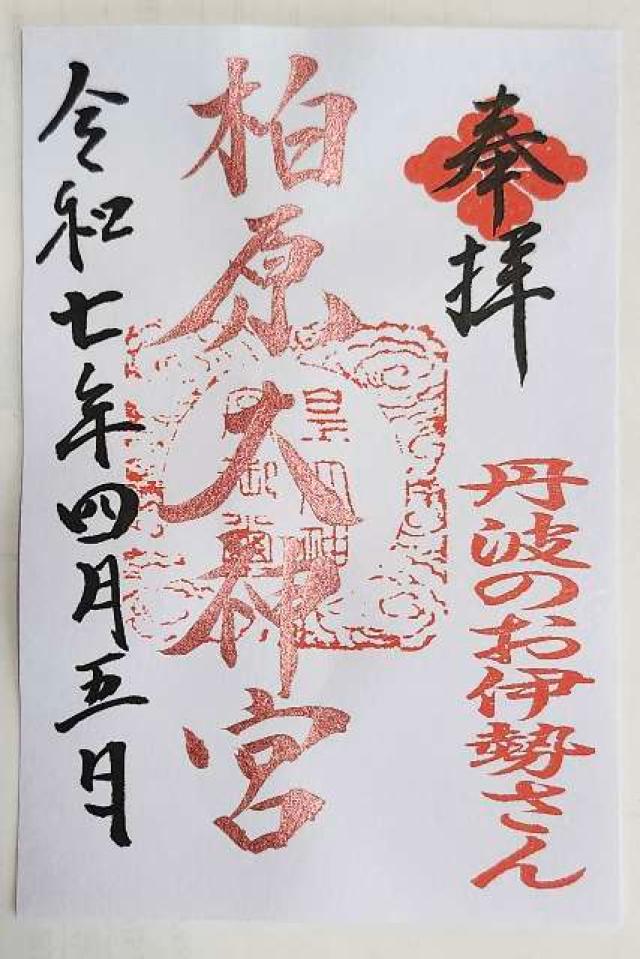 奉拝
丹波のお伊勢さん
柏原大神宮
令和七年四月五日